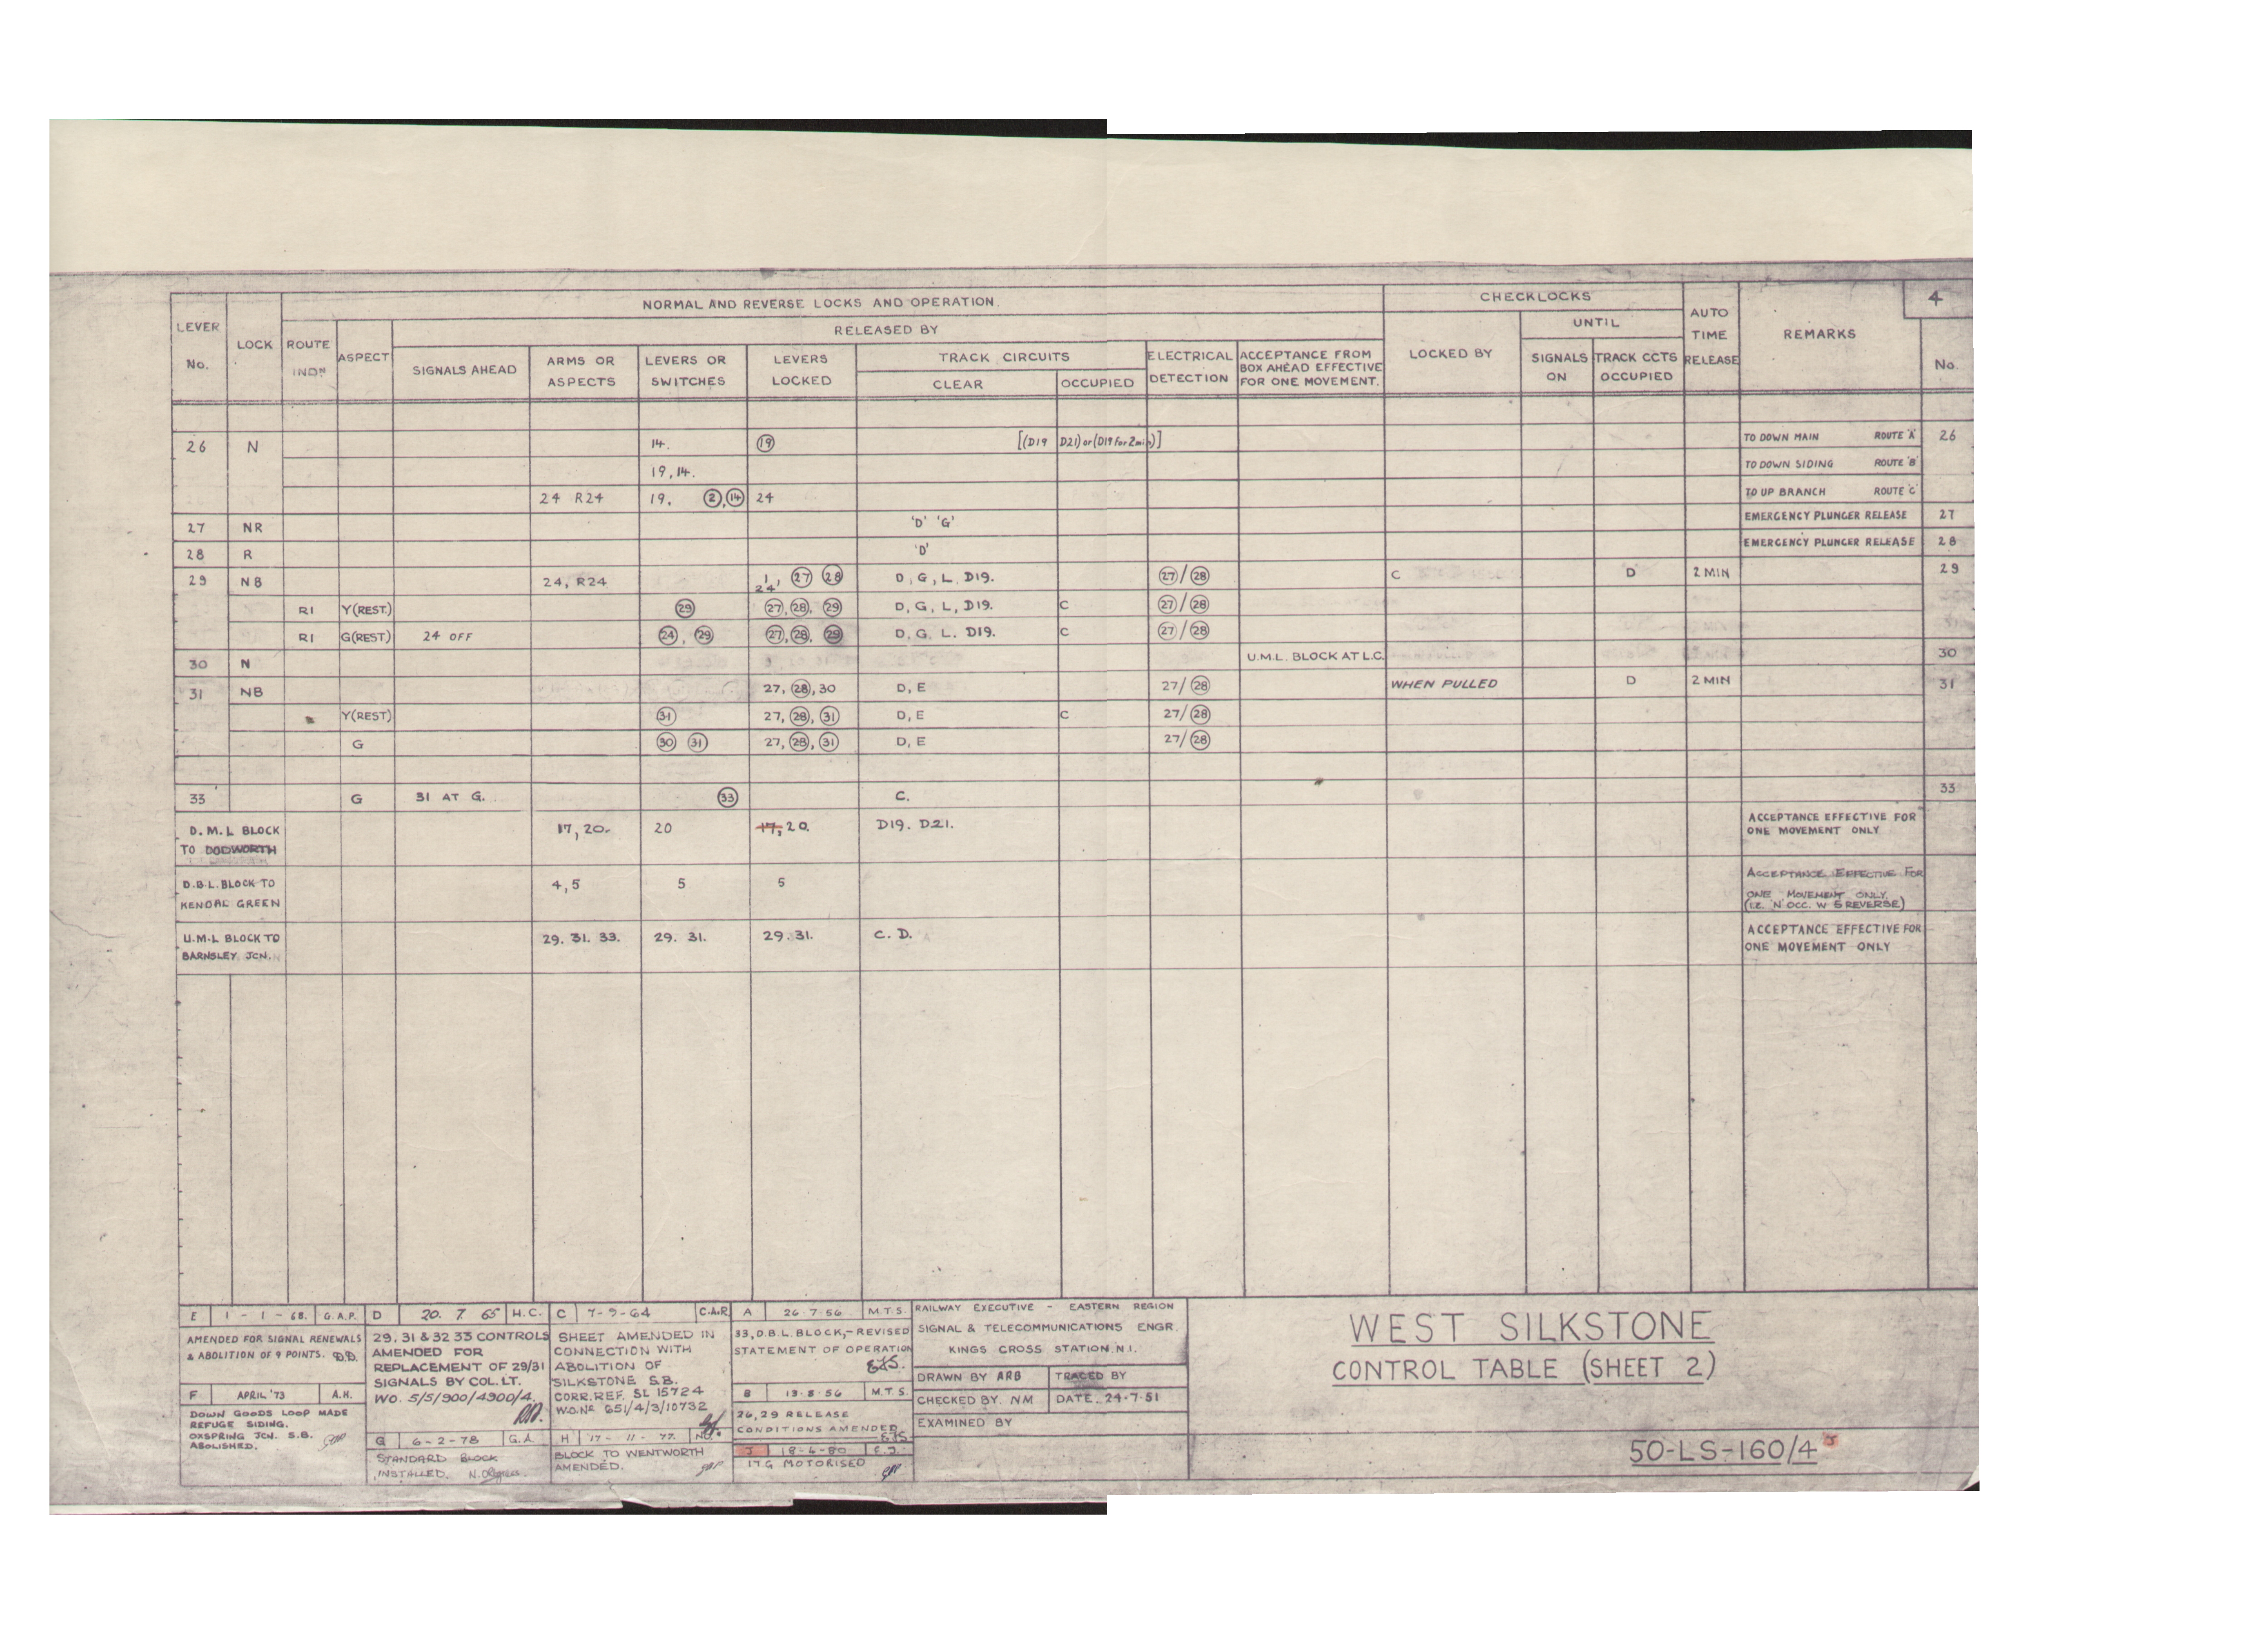 NORMAL AND REVERSE LOCKS AND OPERATION.
CHECKLOCKS
4
LEVER No.
LOCK
ROUTE INDN
ASPECT
RELEASED BY
SIGNALS AHEAD
ARMS OR ASPECTS
LEVERS OR SWITCHES
LEVERS LOCKED
TRACK CIRCUITS
CLEAR
OCCUPIED
ELECTRICAL DETECTION
ACCEPTANCE FROM BOX AHEAD EFFECTIVE FOR ONE MOVEMENT.
LOCKED BY
UNTIL
SIGNALS ON
TRACK CCTS OCCUPIED
AUTO TIME RELEASE
REMARKS
No.
26 N 14. 19 [(D19 D21) or (D19 for 2 min)] TO DOWN MAIN ROUTE 'A' 26
19, 14. TO DOWN SIDING ROUTE 'B'
24 R24 19. 2, 14 24 TO UP BRANCH ROUTE 'C'
27 NR 'D' 'G' EMERGENCY PLUNGER RELEASE 27
28 R 'D' EMERGENCY PLUNGER RELEASE 28
29 NB 24, R24 1, 24, 27 28 D, G, L, D19. 27/28 C D 2 MIN 29
R1 Y(REST.) 29 27, 28, 29 D, G, L, D19. C 27/28
R1 G(REST) 24 OFF 24, 29 27, 28, 29 D, G. L. D19. C 27/28
30 N U.M.L. BLOCK AT L.C. 30
31 NB 27, 28, 30 D, E 27/28 WHEN PULLED D 2 MIN 31
Y(REST) 31 27, 28, 31 D, E C 27/28
G 30 31 27, 28, 31 D, E 27/28
33 G 31 AT G. 33 C. 33
D. M. L BLOCK TO DODWORTH 17, 20. 20 17, 20. D19. D21. ACCEPTANCE EFFECTIVE FOR ONE MOVEMENT ONLY
D.B.L. BLOCK TO KENDAL GREEN 4, 5 5 5 ACCEPTANCE EFFECTIVE FOR ONE MOVEMENT ONLY. (I.E. 'N' OCC. W 5 REVERSE)
U.M.L BLOCK TO BARNSLEY JCN. 29. 31. 33. 29. 31. 29. 31. C. D. ACCEPTANCE EFFECTIVE FOR ONE MOVEMENT ONLY
E 1 - 1 - 68. G.A.P.
AMENDED FOR SIGNAL RENEWALS
& ABOLITION OF 9 POINTS. D.D.
F APRIL '73 A.H.
DOWN GOODS LOOP MADE
REFUGE SIDING.
OXSPRING JCN. S.B.
ABOLISHED.
D 20. 7. 65 H.C.
29, 31 & 32 33 CONTROLS
AMENDED FOR
REPLACEMENT OF 29/31
SIGNALS BY COL. LT.
WO. 5/5/900/4900/4.
G 6-2-78 G.A
STANDARD BLOCK
INSTALLED.
C 7-9-64 C.A.R.
SHEET AMENDED IN
CONNECTION WITH
ABOLITION OF
SILKSTONE S.B.
CORR. REF. SL 15724
W.O.No 651/4/3/10732
H 17-11-77.
BLOCK TO WENTWORTH
AMENDED.
A 26-7-56 M.T.S.
33, D.B.L. BLOCK, - REVISED
STATEMENT OF OPERATION
B 13-8-56 M.T.S.
26, 29 RELEASE
CONDITIONS AMENDED
J 18-4-80 C.J.
17G MOTORISED
RAILWAY EXECUTIVE - EASTERN REGION
SIGNAL & TELECOMMUNICATIONS ENGR.
KINGS CROSS STATION. N.1.
DRAWN BY ARB TRACED BY
CHECKED BY. NM DATE. 24-7-51
EXAMINED BY
WEST SILKSTONE
CONTROL TABLE (SHEET 2)
50-LS-160/4 J